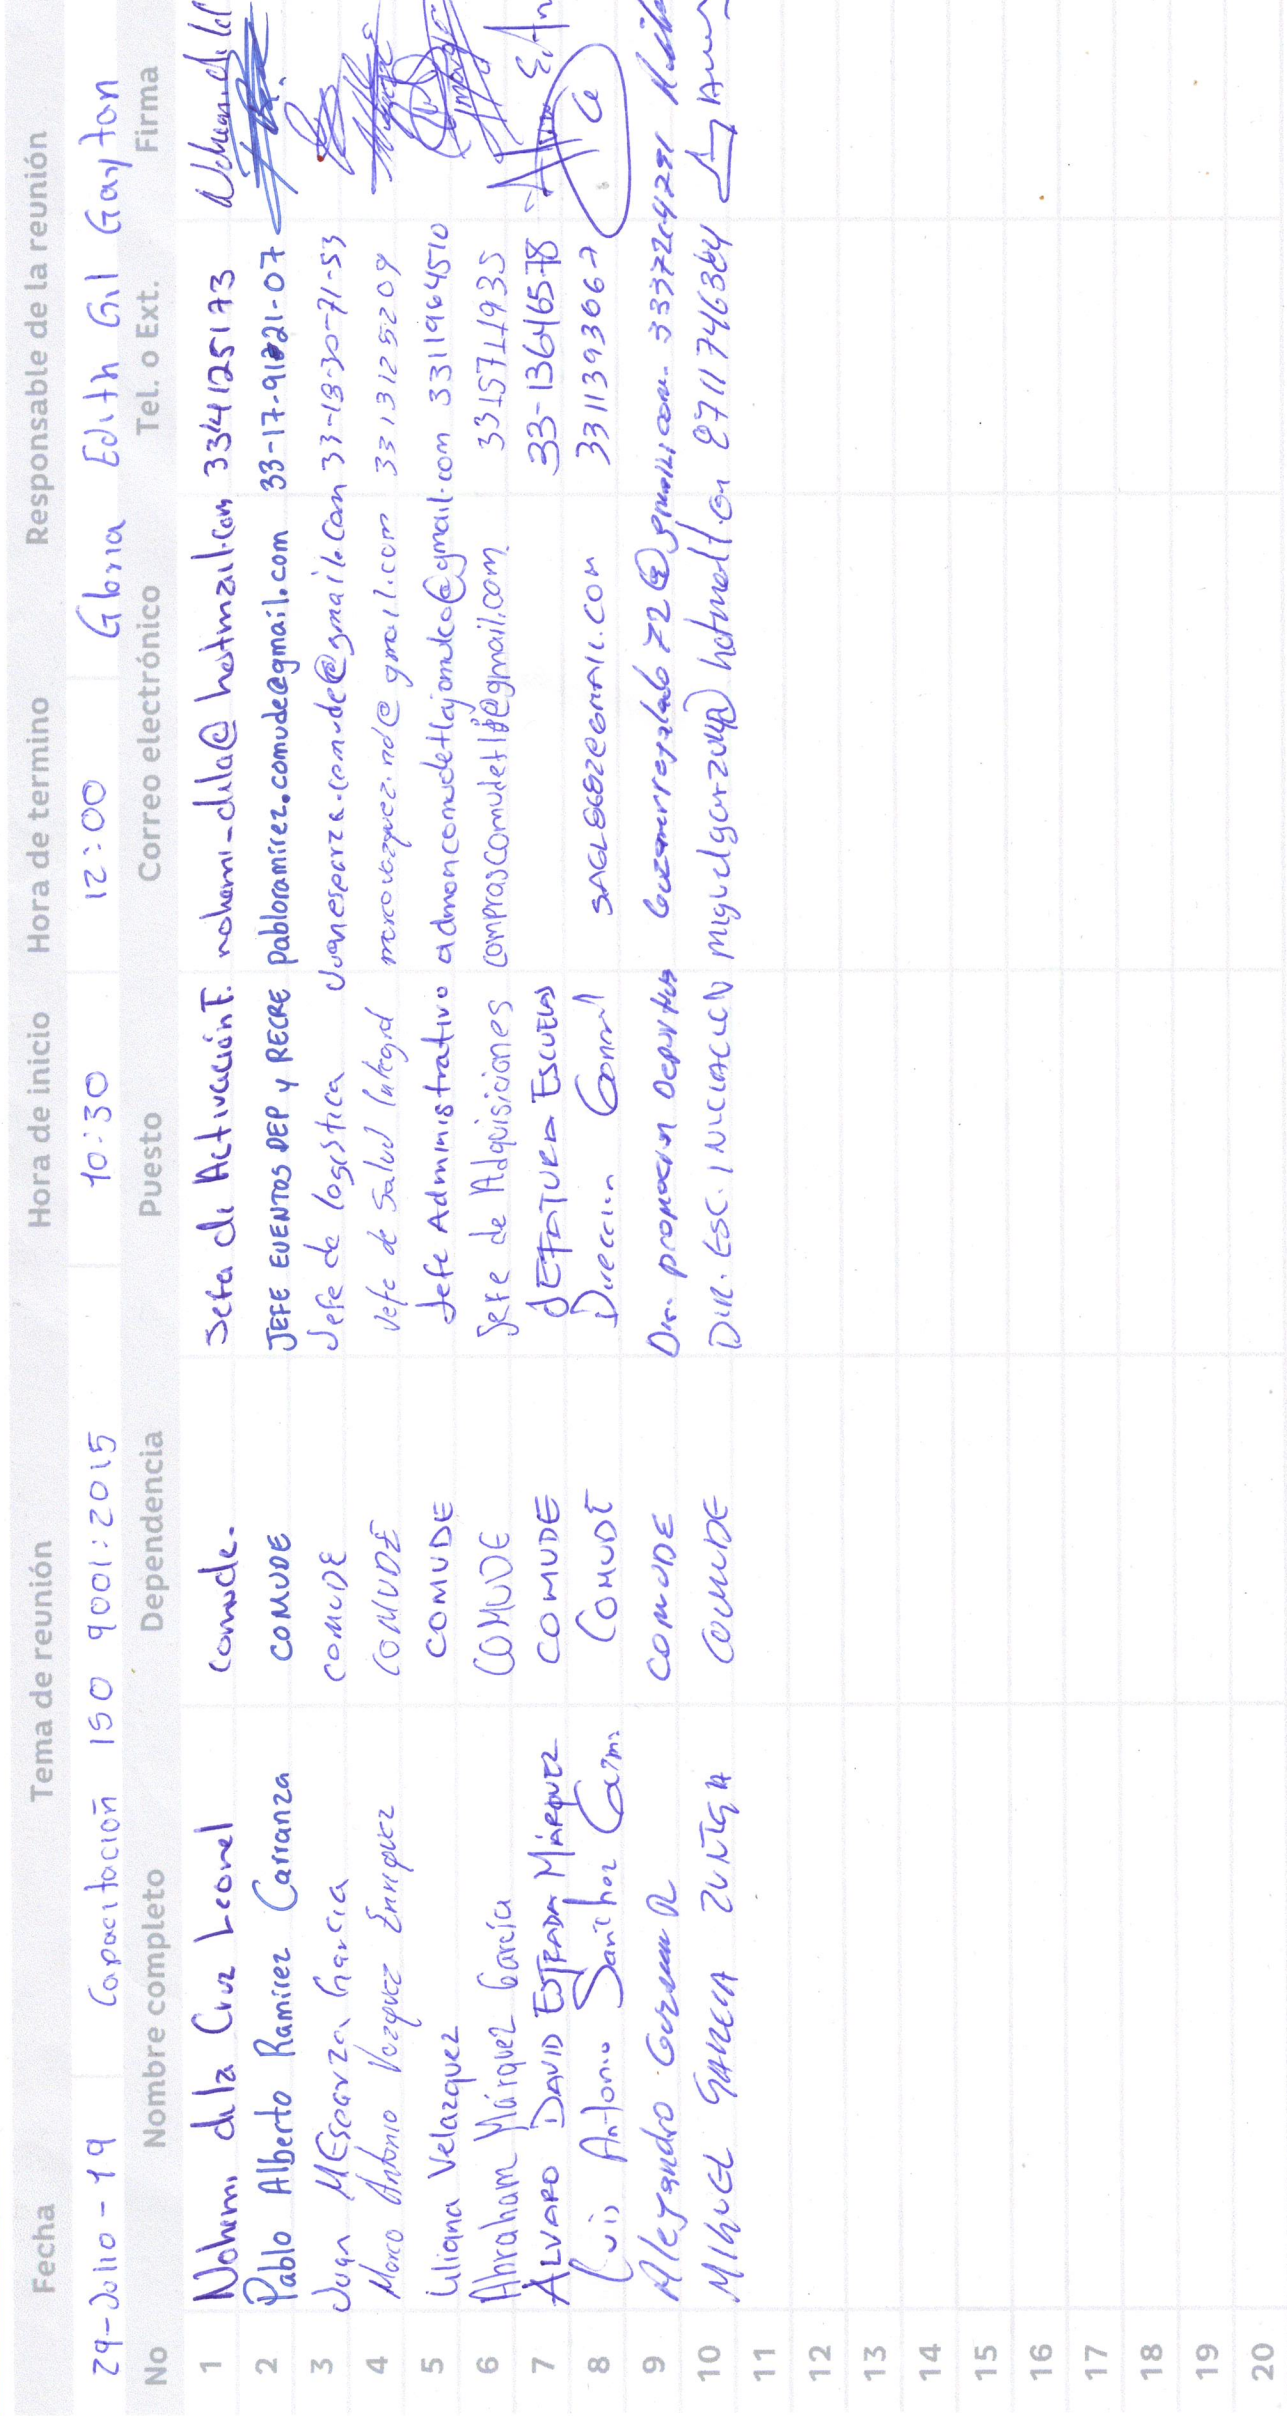 Fecha Tema de reunión Hora de inicio Hora de termino Responsable de la reunión
29-Julio-19 Capacitación ISO 9001:2015 10:30 12:00 Gloria Edith Gil Gaytan
No Nombre completo Dependencia Puesto Correo electrónico Tel. o Ext. Firma
1 Nohemi de la Cruz Leonel Comude. Jefa de Activación F. nohemi-dela@hotmail.com 3334125173
2 Pablo Alberto Ramirez Carranza COMUDE JEFE EVENTOS DEP y RECRE pabloramirez.comude@gmail.com
3 Juan M Esparza Garcia COMUDE Jefe de logistica Juanesparza.comude@gmail.com 33-18-30-71-53
4 Marco Antonio Vazquez Enriquez COMUDE Jefe de Salud Integral marcovazquez.nd@gmail.com 3313125209
5 Liliana Velazquez COMUDE Jefe Administrativo admoncomudetlajomulco@gmail.com 3311964510
6 Abraham Márquez García COMUDE Jefe de Adquisiciones 3315711935
7 ALVARO DAVID ESTRADA MÁRQUEZ COMUDE JEFATURA ESCUELAS 33-13646578
8 Luis Antonio Sanchez COMUDE Direccion General 3311393067
9 Alejandro Guzman R COMUDE Dir. promocion Deportiva
10 MIGUEL GARCIA ZUNIGA COMUDE DIR. ESC. INICIACION
11
12
13
14
15
16
17
18
19
20